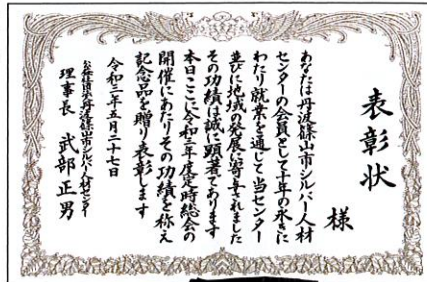 表彰状
様
あなたは丹波篠山市シルバー人材
センターの会員として十年の永きに
わたり就業を通じて当センター
並びに地域の発展に寄与されました
その功績は誠に顕著であります
本日ここに令和三年度定時総会の
開催にあたりその功績を称え
記念品を贈り表彰します
令和三年五月二十七日
公益社団法人丹波篠山市シルバー人材センター
理事長 武部正男